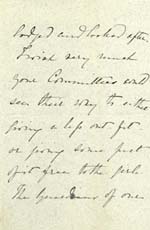 lodged and looked after.
I wish very much
your Committees could
see their way to either
giving a less out fit
or giving some part
of it free to the girls
The Guardians of one